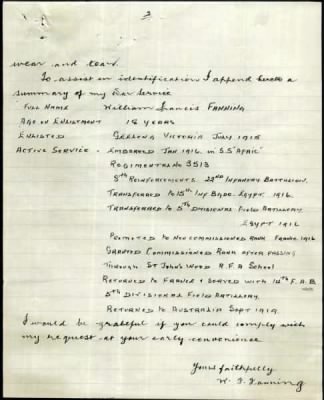 2
wear and tear.
To assist in identification I append hereto a
summary of my War Service
FULL NAME William Francis FANNING
AGE ON ENLISTMENT 18 YEARS
ENLISTED GEELONG VICTORIA JULY 1915
ACTIVE SERVICE - EMBARKED JAN 1916 in S.S "AFRIC"
REGIMENTAL No 3513
8th REINFORCEMENTS 22nd INFANTRY BATTALION.
TRANSFERRED TO 15th INF BGDE. EGYPT 1916
TRANSFERRED TO 5th DIVISIONAL FIELD ARTILLERY
EGYPT 1916
PROMOTED TO NON COMMISSIONED RANK FRANCE 1916
GRANTED COMMISSIONED RANK AFTER PASSING
THROUGH ST JOHN'S WOOD R.F.A SCHOOL
RETURNED TO FRANCE & SERVED WITH 14th F.A.B
5th DIVISIONAL FIELD ARTILLERY.
RETURNED TO AUSTRALIA SEPT 1919
I would be grateful if you could comply with
my request at your early convenience
Yours faithfully
W. F. Fanning